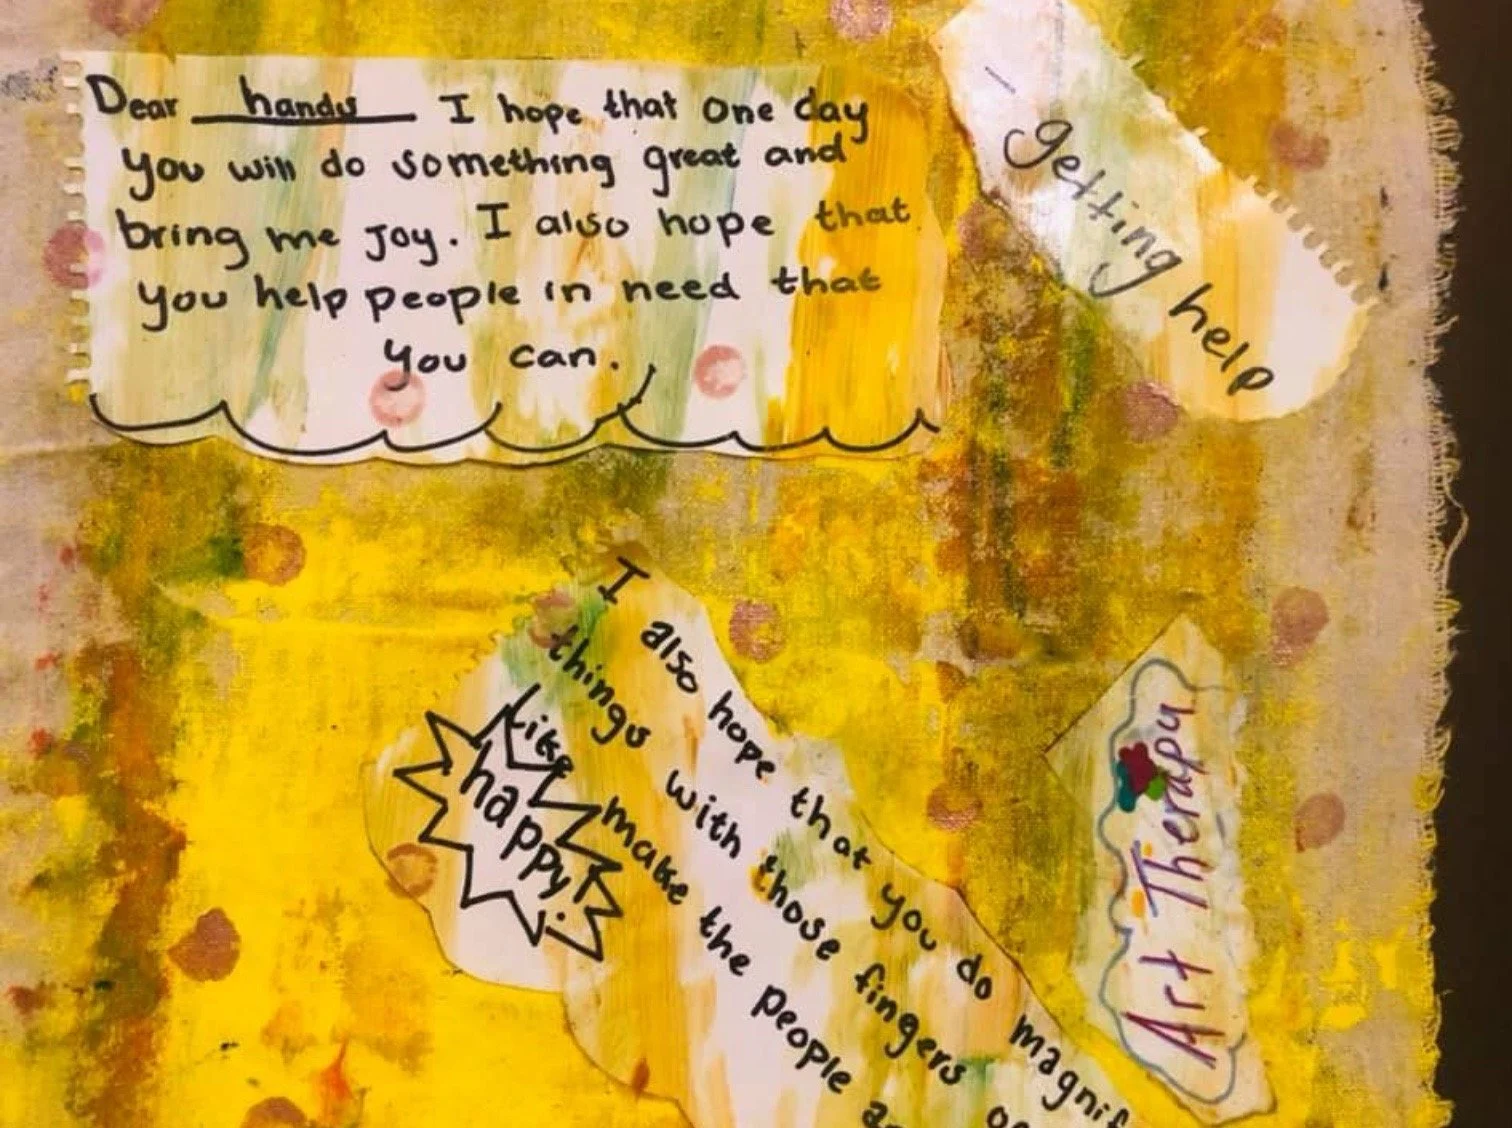 Dear hands I hope that one day
you will do something great and
bring me joy. I also hope that
you help people in need that
you can.
- getting help
I also hope that you do
things with those fingers
Like make the people
happy!
Art Therapy